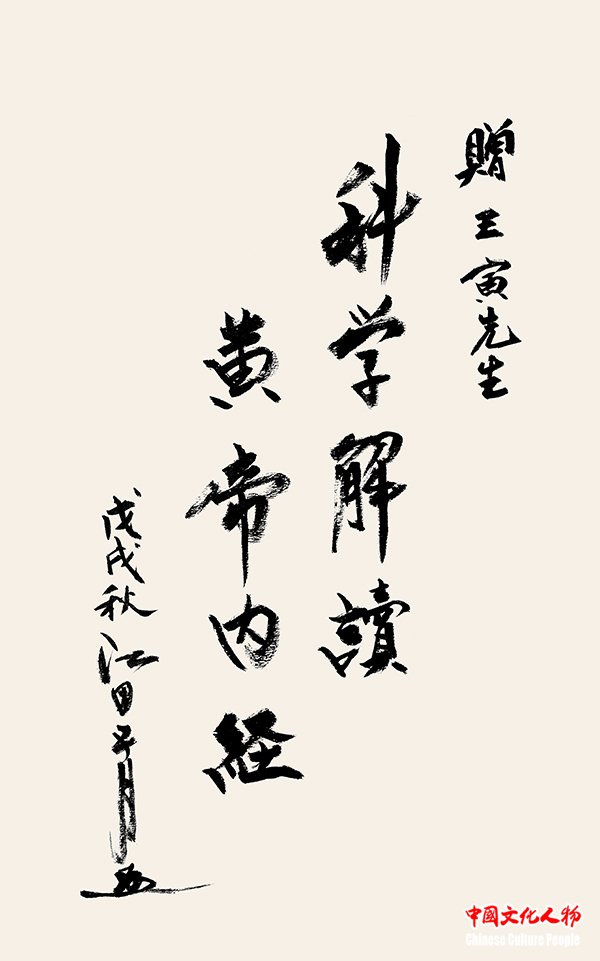 贈王寅先生
科学解讀
黄帝内経
戊戌秋江田
中國文化人物
Chinese Culture People